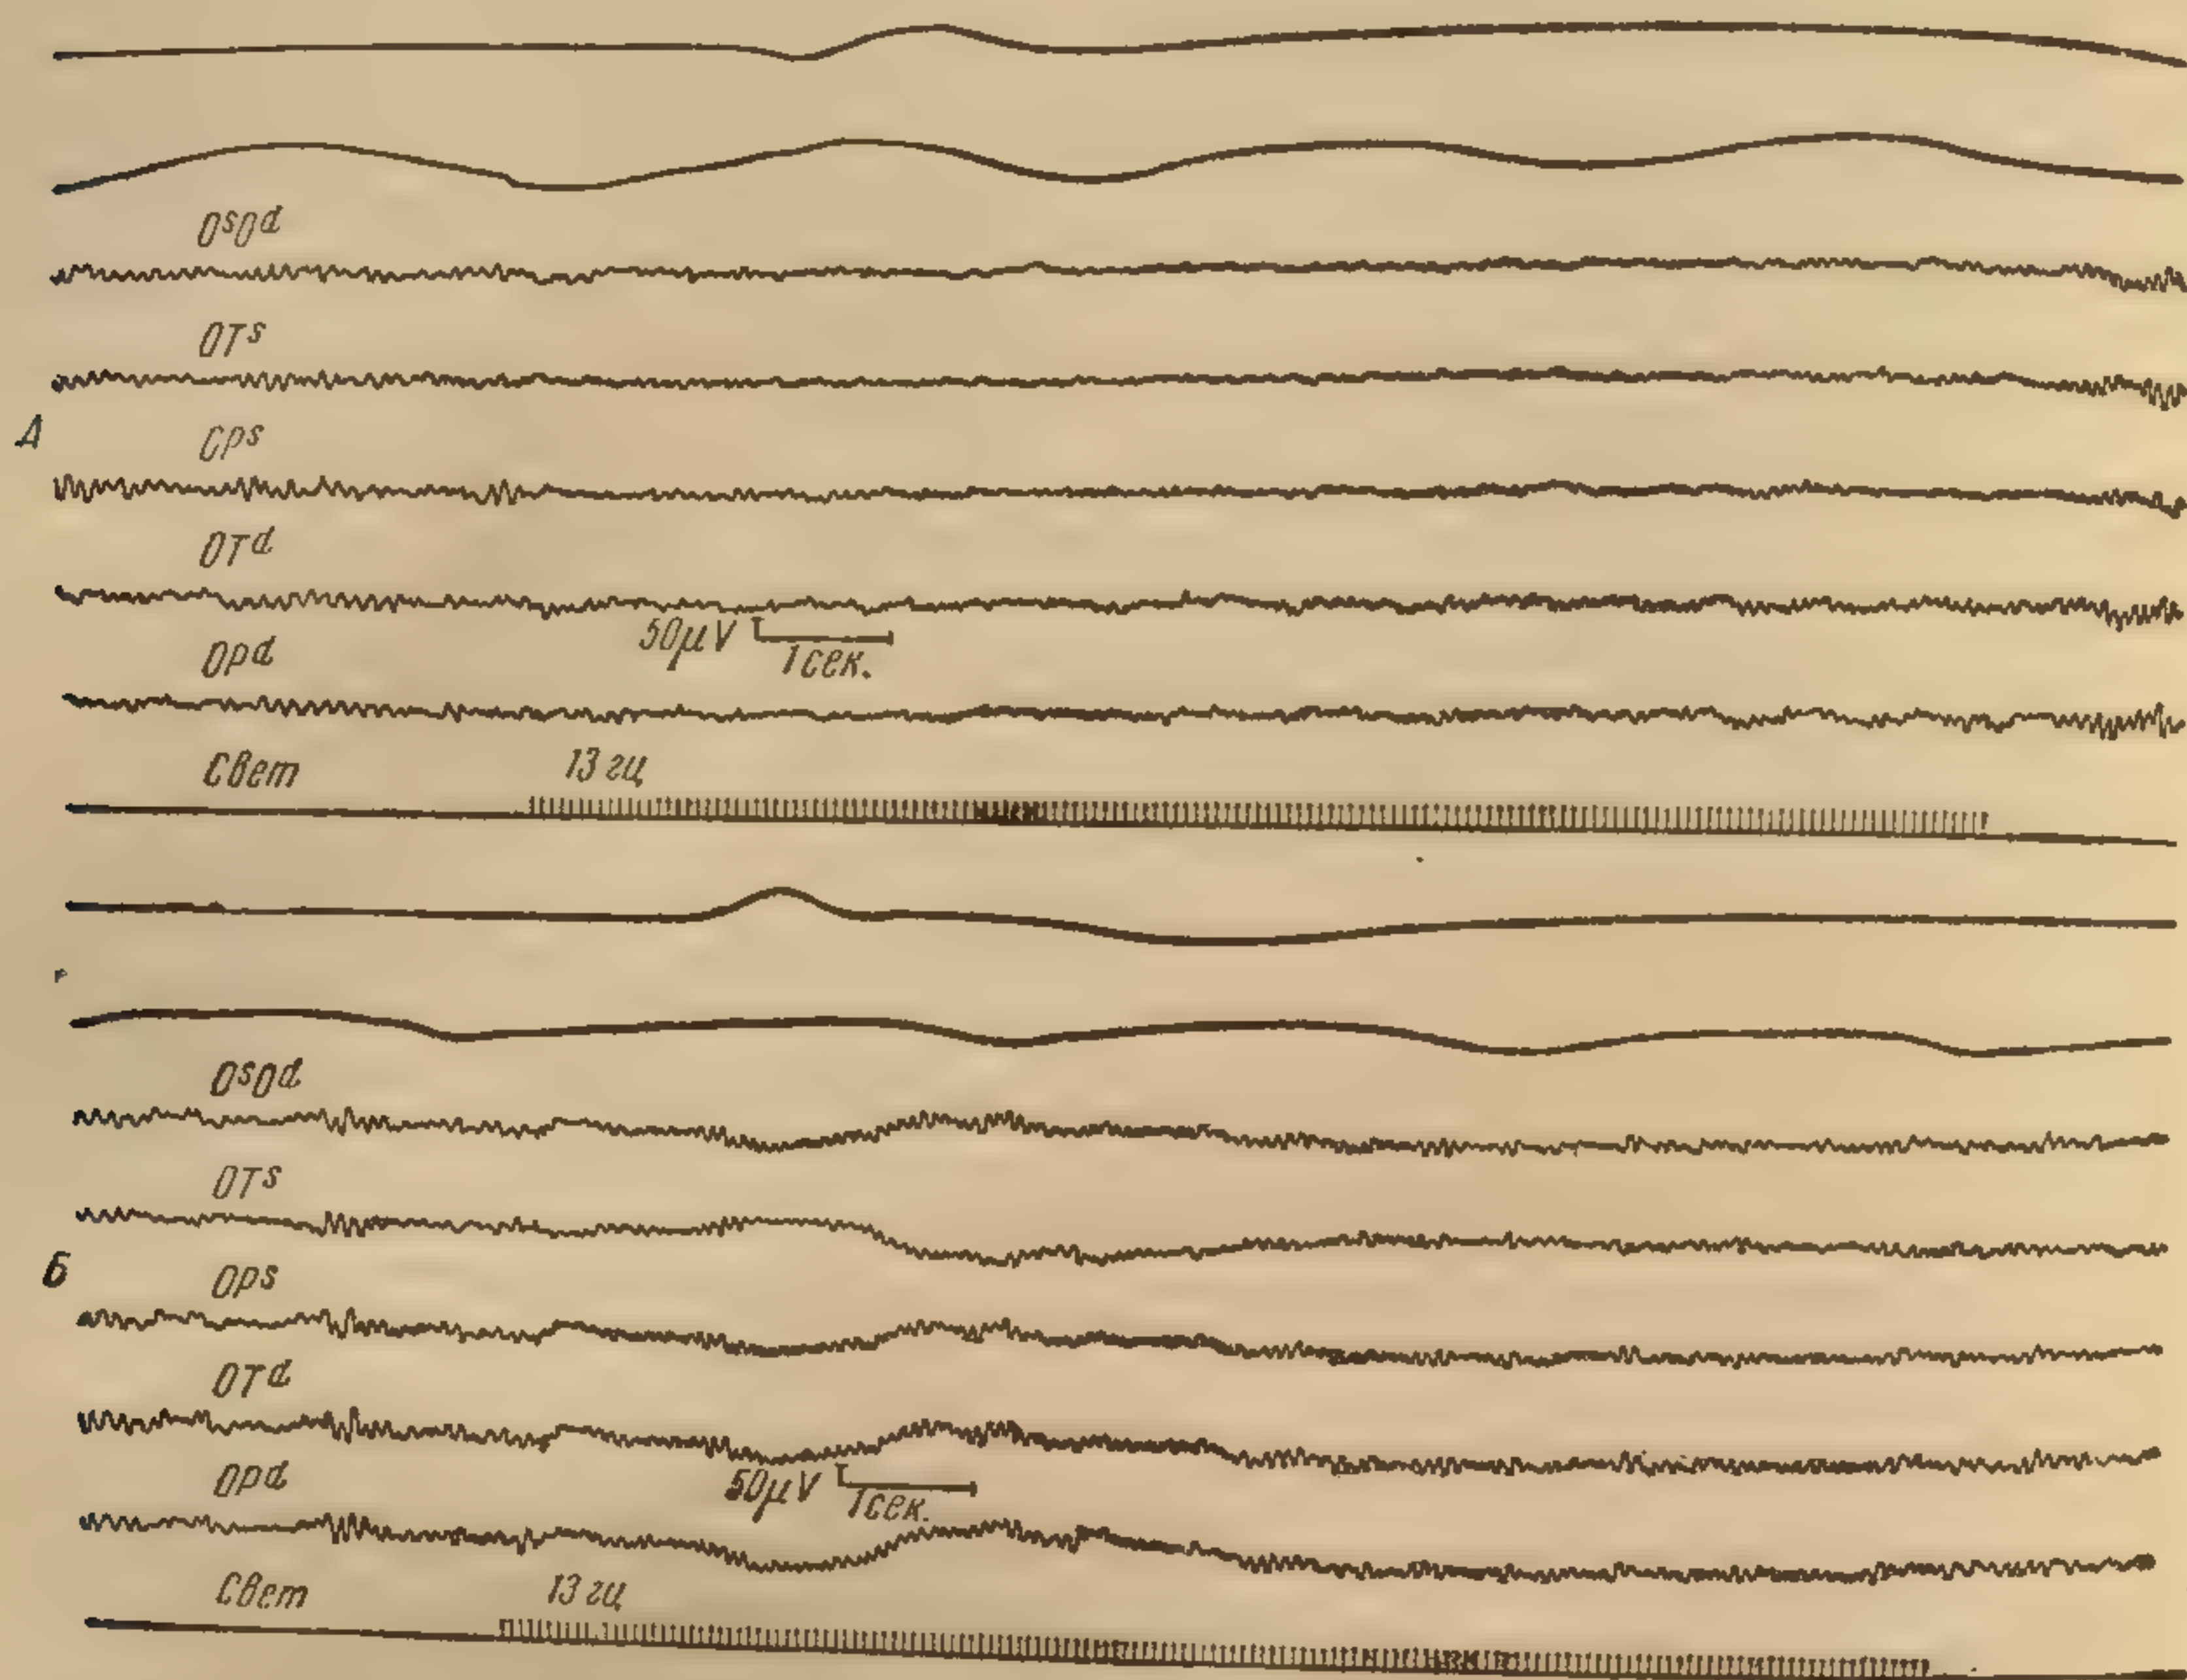 OsOd
OTs
А
Cps
OTd
50μV 1сек.
Opd
Свет 13 гц
OsOd
OTs
Б
Ops
OTd
Opd 50μV 1сек.
Свет 13 гц